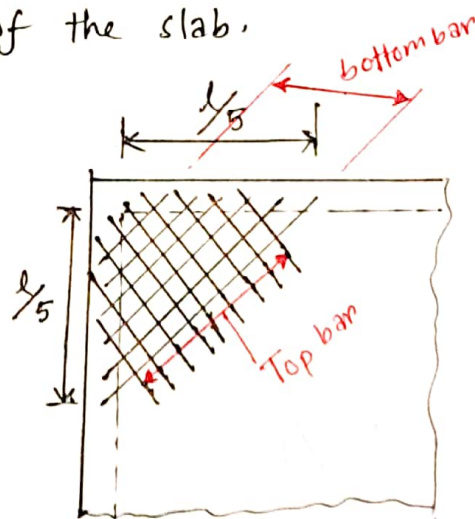 of the slab.
bottom bar
l/5
l/5
Top bar